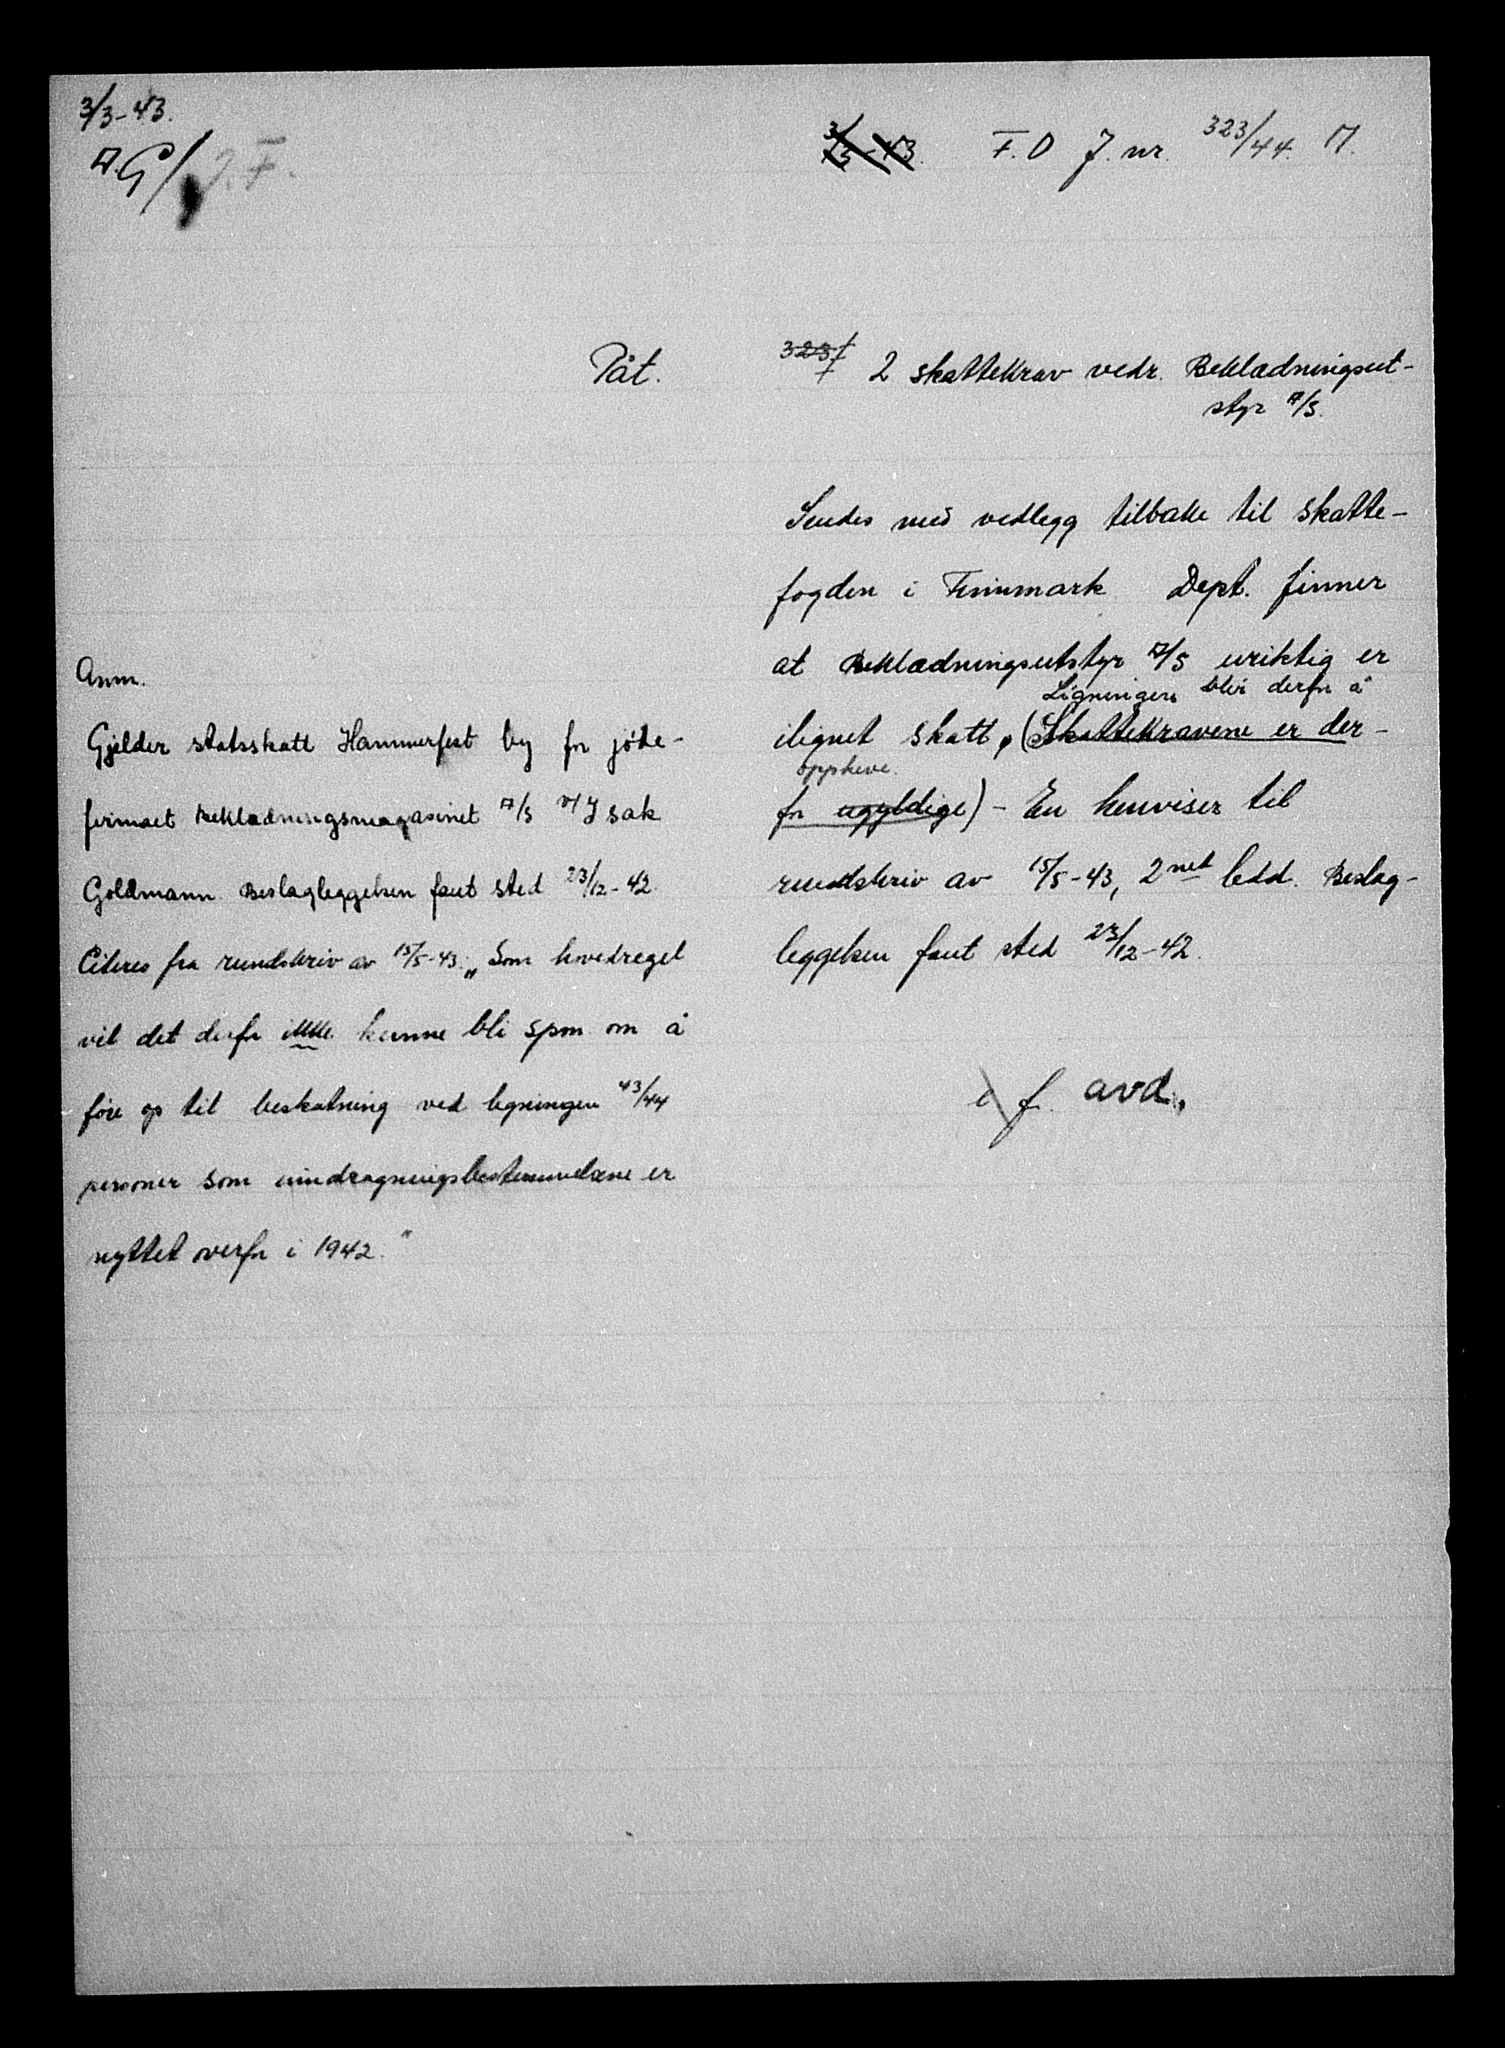 3/3-43.
A.G/J.F.
3/3-43. F.D J. nr. 323/44. M.
Påt.
323/ 2 skattekrav vedr. Beklædningsut-
styr A/S.
Sendes med vedlegg tilbake til skatte-
fogden i Finnmark Dept. finner
at Beklædningsutstyr A/S uriktig er
Ligningen blir derfor å
ilignet skatt, (Skattekravene er der-
oppheve.
for ugyldige) - En henviser til
rundskriv av 15/5-43, 2net ledd. Beslag-
leggelsen fant sted 23/12-42.
i f. avd.
Anm.
Gjelder statsskatt Hammerfest by for jøde-
firmaet Beklædningsmagasinet A/S v/ Isak
Goldmann. Beslagleggelsen fant sted 23/12-42
Citeres fra rundskriv av 15/5-43: „Som hovedregel
vil det derfor ikke kunne bli spm om å
føre op til beskatning ved ligningen 43/44
personer som inndragningsbestemmelsene er
nyttet overfor i 1942."